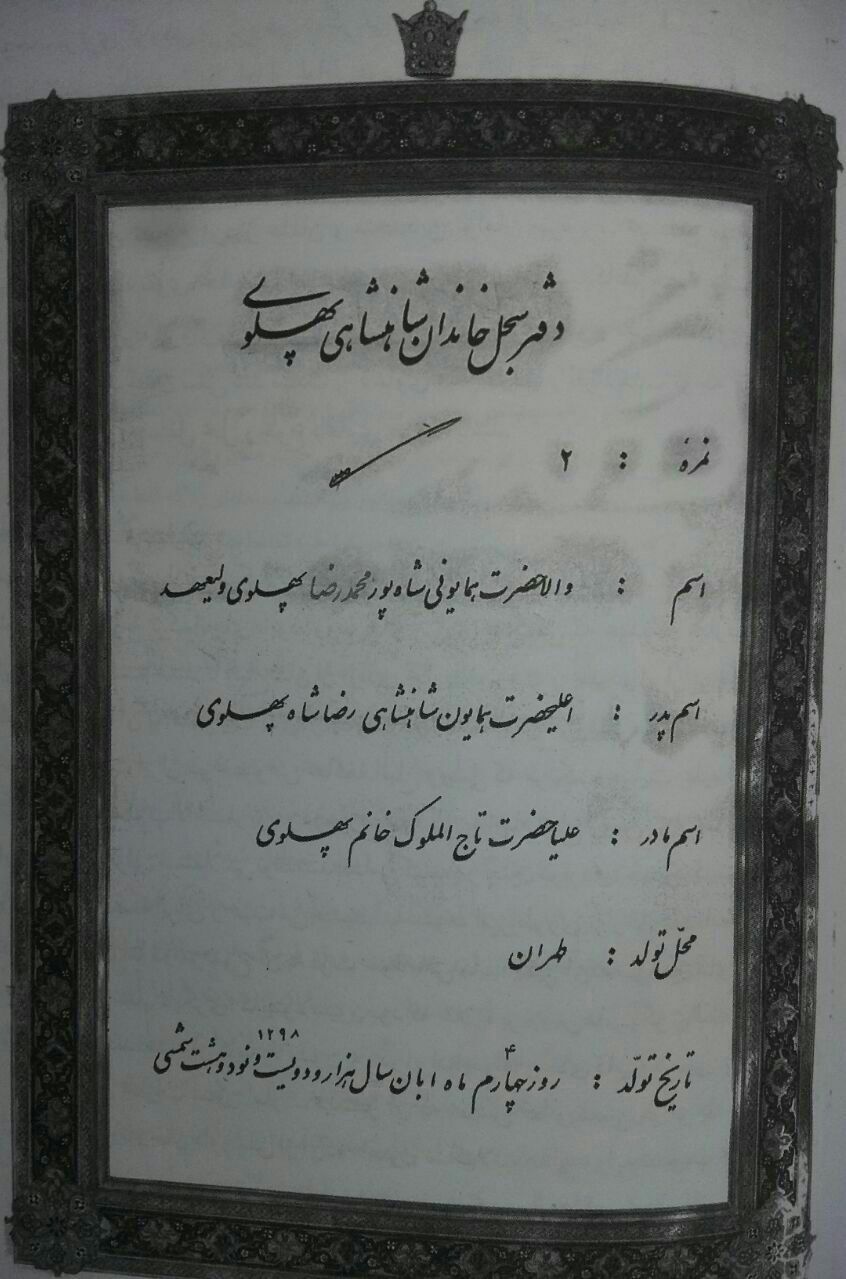 دفتر سجل خاندان شاهنشاهی پهلوی
نمرهٔ : ۲
اسم : والاحضرت همایونی شاه پور محمدرضا پهلوی ولیعهد
اسم پدر : اعلیحضرت همایون شاهنشاهی رضا شاه پهلوی
اسم مادر : علیاحضرت تاج الملوک خانم پهلوی
محلّ تولد : طهران
تاریخ تولّد : روز چهارم ۴ ماه ابان سال هزار و دویست و نود و هشت ۱۲۹۸ شمسی